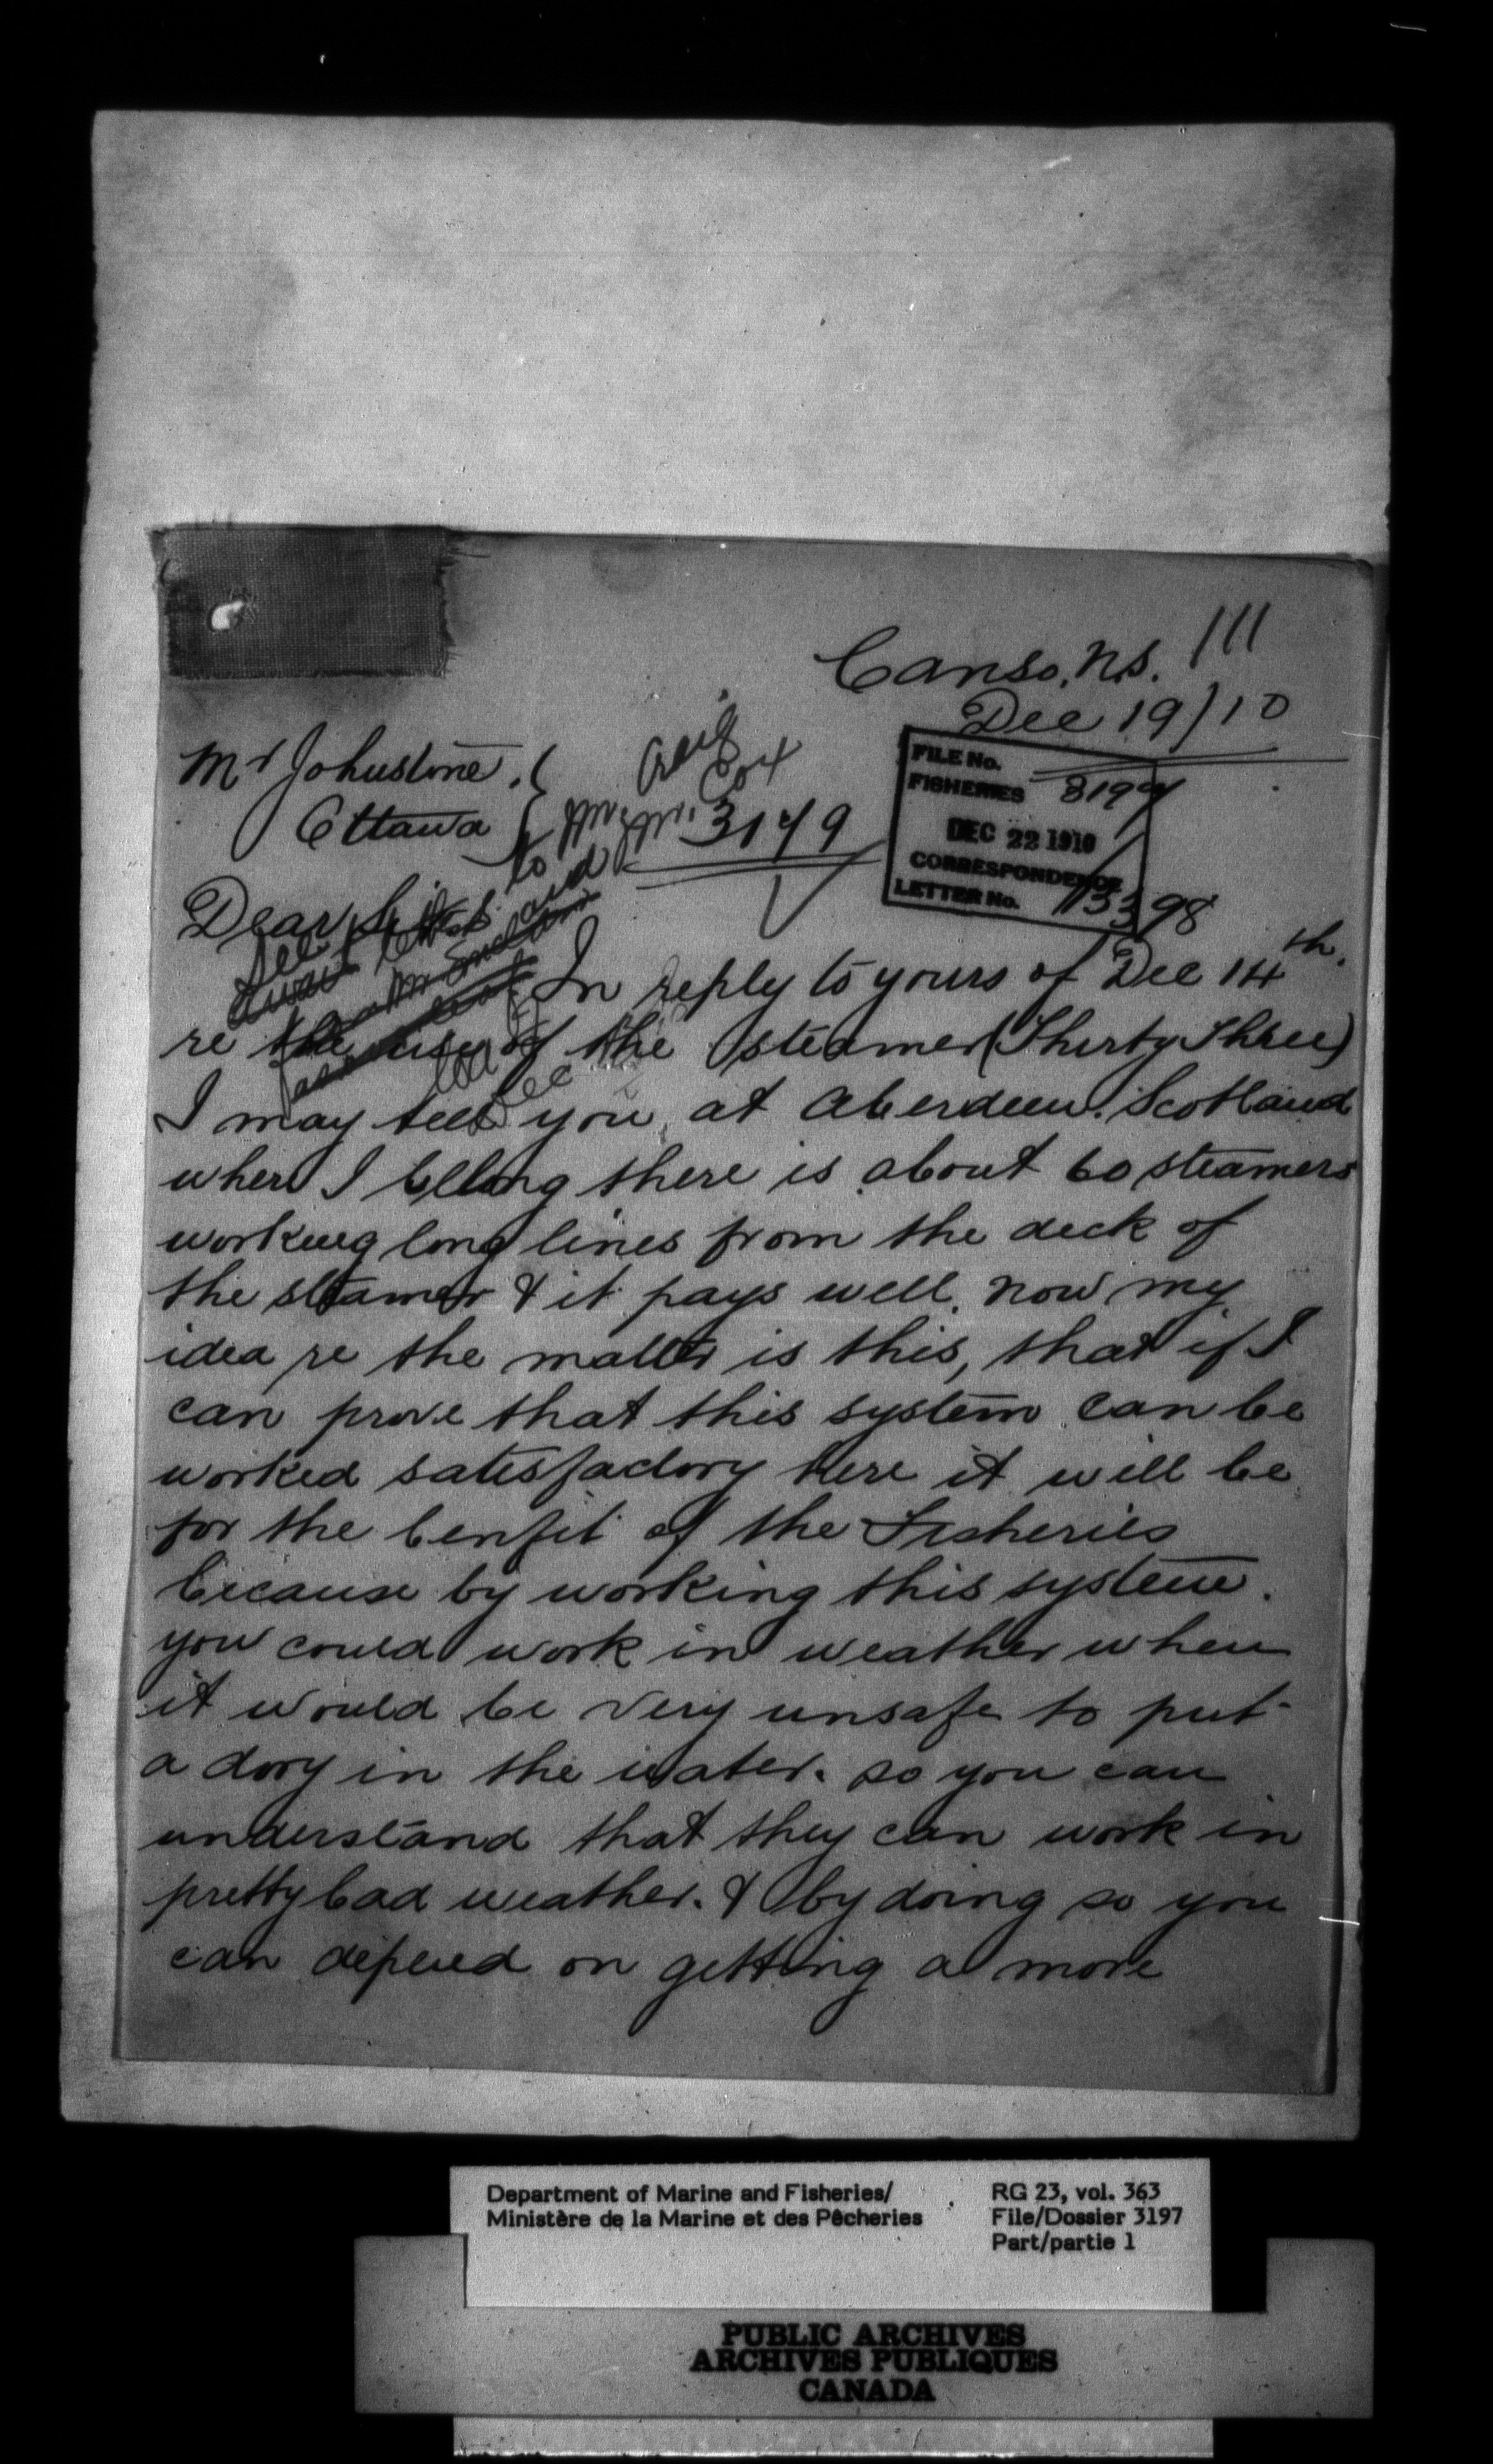 Canso, N.S. 111
Dec 19/10
Mr Johnstone,
Ottawa
Craig
Mr. Cox
3149
FILE No.
FISHERIES 8199
DEC 22 1910
CORRESPONDENCE
LETTER No. 13398
Dear Sir
See
letters to Mr.
and
Dec
In reply to yours of Dec 14th.
re the use of the steamer (Thirty Three)
I may tell you, at Aberdeen. Scotland
where I bllong there is about 60 steamers
working long lines from the deck of
the steamer & it pays well. now my
idea re the matter is this, that if I
can prove that this system can be
worked satisfactory here it will be
for the benfit of the Fisheries
because by working this system.
you could work in weather when
it would be very unsafe to put
a dory in the water. so you can
understand that they can work in
pretty bad weather. & by doing so you
can depend on getting a more
Department of Marine and Fisheries/
Ministère de la Marine et des Pêcheries
RG 23, vol. 363
File/Dossier 3197
Part/partie 1
PUBLIC ARCHIVES
ARCHIVES PUBLIQUES
CANADA